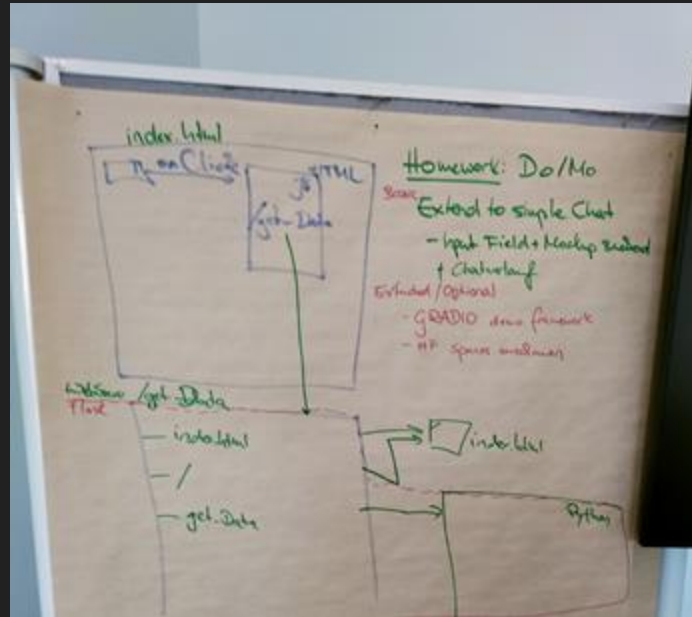 index.html
onClick
HTML
JS
get-Data
Homework: Do/Mo
Extend to simple Chat
- Input Field + Mockup
+ Chatverlauf
Extended/Optional
- GRADIO demo framework
- HF spaces
/get-Data
Flask
index.html
/
get-Data
index.html
Python